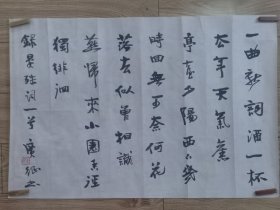 一曲新詞酒一杯
去年天氣舊
亭臺夕陽西下幾
時回無可奈何花
落去似曾相識
燕歸來小園香徑
獨徘徊
錄晏殊詞一首